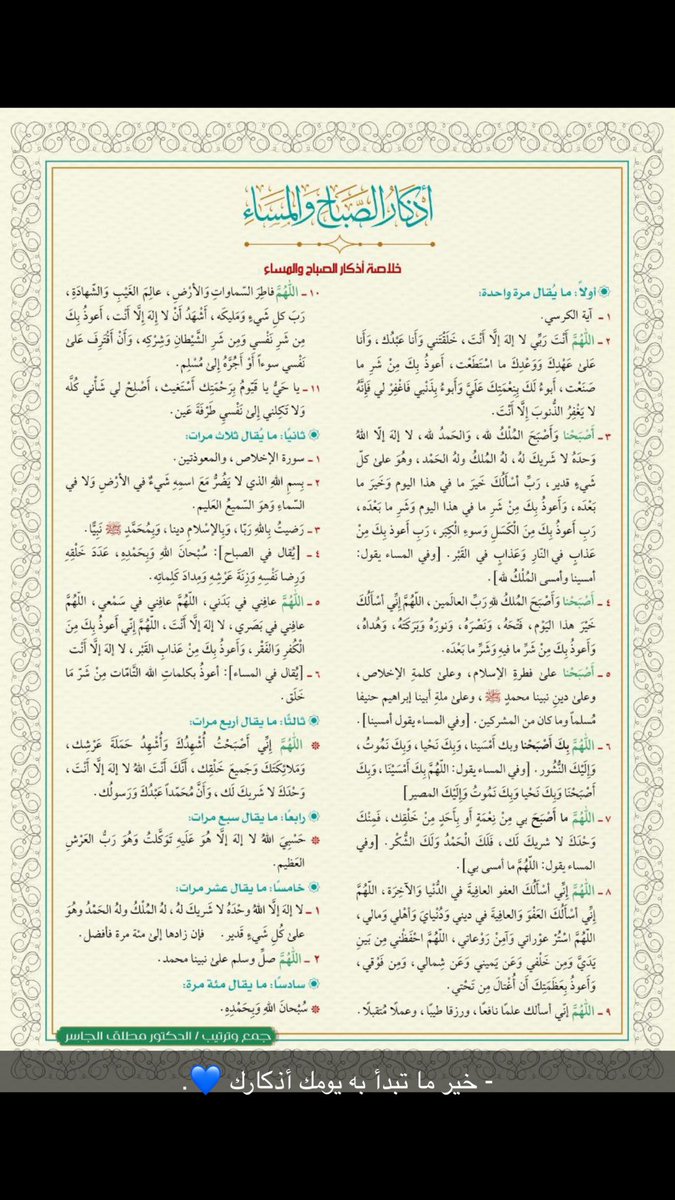 أذكار الصباح والمساء
خلاصة أذكار الصباح والمساء
أولاً: ما يُقال مرة واحدة:
١ ـ آية الكرسي.
٢ ـ اللَّهُمَّ أَنْتَ رَبِّي لا إلهَ إلَّا أَنْتَ، خَلَقْتَني وَأَنا عَبْدُك، وَأَنا
عَلىٰ عَهْدِكَ وَوَعْدِكَ ما اسْتَطَعْت، أَعوذُ بِكَ مِنْ شَرِ ما
صَنَعْت، أَبوءُ لَكَ بِنِعْمَتِكَ عَلَيَّ وَأَبوءُ بِذَنْبي فَاغْفِرْ لي فَإِنَّهُ
لا يَغْفِرُ الذُّنوبَ إِلَّا أَنْتَ.
٣ ـ أَصْبَحْنا وَأَصْبَحَ المُلْكُ لله، وَالحَمدُ لله، لا إلهَ إلّا اللهُ
وَحدَهُ لا شَريكَ لهُ، لهُ المُلكُ ولهُ الحَمْد، وهُوَ علىٰ كلّ
شَيءٍ قدير، رَبِّ أَسْأَلُكَ خَيرَ ما في هذا اليوم وَخَيرَ ما
بَعْدَه، وَأَعوذُ بِكَ مِنْ شَرِ ما في هذا اليوم وَشَرِ ما بَعْدَه،
رَبِ أَعوذُ بِكَ مِنَ الْكَسَلِ وَسوءِ الْكِبَر، رَبِ أَعوذ بِكَ مِنْ
عَذابٍ في النّارِ وَعَذابٍ في القَبْر. [وفي المساء يقول:
أمسينا وأمسى المُلْكُ لله].
٤ ـ أَصْبَحْنا وَأَصْبَحَ المُلكُ للهِ رَبِّ العالَمين، اللهُمَّ إِنِّي أَسْأَلُكَ
خَيْرَ هذا اليَوْم، فَتْحَهُ، وَنَصْرَهُ، وَنورَهُ وَبَرَكَتَهُ، وَهُداهُ،
وَأَعوذُ بِكَ مِنْ شَرِّ ما فيهِ وَشَرِّ ما بَعْدَه.
٥ ـ أَصْبَحْنا على فطرةِ الإسلام، وعلىٰ كلمةِ الإخلاص،
وعلىٰ دينِ نبينا محمدٍ ﷺ، وعلىٰ ملةِ أبينا إبراهيم حنيفا
مُسلماً وما كان من المشركين. [وفي المساء يقول أمسينا].
٦ ـ اللَّهُمَّ بِكَ أَصْبَحْنا وبك أمْسَينا، وَبِكَ نَحْيا، وَبِكَ نَمُوتُ،
وَإِلَيْكَ النُّشُور. [وفي المساء يقول: اللَّهُمَّ بِكَ أَمْسَيْنَا، وَبِكَ
أَصْبَحْنَا وَبِكَ نَحْيا وَبِكَ نَمُوتُ وَإِلَيْكَ المصير]
٧ ـ اللَّهُمَّ ما أَصْبَحَ بي مِنْ نِعْمَةٍ أو بِأَحَدٍ مِنْ خَلْقِك، فَمِنْكَ
وَحْدَكَ لا شريكَ لك، فَلَكَ الْحَمْدُ وَلَكَ الشُّكْر. [وفي
المساء يقول: اللَّهُمَّ ما أمسى بي].
٨ ـ اللَّهُمَّ إِنِّي أَسْأَلُكَ العفو العافِيةَ في الدُّنْيا وَالآخِرَة، اللَّهُمَّ
إِنِّي أَسْأَلُكَ العَفْوَ وَالعافِيةَ في ديني وَدُنْيَايَ وَأَهْلي وَمالي،
اللَّهُمَّ اسْتُرْ عوْراتي وَآمِنْ رَوْعاتي، اللَّهُمَّ احْفَظْني مِن بَينِ
يَدَيَّ وَمِن خَلْفي وَعَن يَميني وَعَن شِمالي، وَمِن فَوْقي،
وَأَعوذُ بِعَظَمَتِكَ أَن أُغْتالَ مِن تَحْتي.
٩ ـ اللَّهُمَّ إنّي أسألك علمًا نافعًا، ورزقا طيبًا، وعملًا متقبلًا.
١٠ ـ اللَّهُمَّ فاطِرَ السّماواتِ وَالأرْضِ، عالِمَ الغَيْبِ وَالشّهادَةِ،
رَبَّ كلِ شَيءٍ وَمَليكَه، أَشْهَدُ أَنْ لا إِلهَ إِلَّا أَنت، أَعوذُ بِكَ
مِن شَرِ نَفْسي وَمِن شَرِ الشَّيْطانِ وَشِرْكِه، وَأَنْ أَقْتَرِفَ عَلىٰ
نَفْسي سوءاً أَوْ أَجُرَّهُ إلىٰ مُسْلِم.
١١ ـ يا حَيُّ يا قَيّومُ بِرَحْمَتِك أَسْتَغيث، أَصْلِحْ لي شَأْني كُلَّه
وَلا تَكِلني إِلىٰ نَفْسي طَرْفَةَ عَين.
ثانيًا: ما يُقال ثلاث مرات:
١ ـ سورة الإخلاص، والمعوذتين.
٢ ـ بِسمِ اللهِ الذي لا يَضُرُّ مَعَ اسمِهِ شَيءٌ في الأرْضِ وَلا في
السّماءِ وَهوَ السّميعُ العَليم.
٣ ـ رَضيتُ بِاللهِ رَبًّا، وَبِالإسْلامِ دينا، وَبِمُحَمَّدٍ ﷺ نَبِيًّا.
٤ ـ [يُقال في الصباح]: سُبْحانَ اللهِ وَبِحَمْدِهِ، عَدَدَ خَلْقِهِ
وَرِضا نَفْسِهِ وَزِنَةَ عَرْشِهِ وَمِدادَ كَلِماتِه.
٥ ـ اللَّهُمَّ عافِني في بَدَني، اللَّهُمَّ عافِني في سَمْعي، اللَّهُمَّ
عافِني في بَصَري، لا إلهَ إلَّا أَنْتَ، اللَّهُمَّ إِنّي أَعوذُ بِكَ مِنَ
الْكُفرِ وَالفَقْر، وَأَعوذُ بِكَ مِنْ عَذابِ القَبْر، لا إلهَ إلَّا أَنْت
٦ ـ [يُقال في المساء]: أعوذُ بكلماتِ الله التَّامَّات مِنْ شَرّ مَا
خَلَق.
ثالثًا: ما يقال أربع مرات:
اللَّهُمَّ إِنِّي أَصْبَحْتُ أُشْهِدُكَ وَأُشْهِدُ حَمَلَةَ عَرْشِك،
وَمَلائِكَتَكَ وَجَميعَ خَلْقِك، أَنَّكَ أَنْتَ اللهُ لا إلهَ إلَّا أَنْتَ،
وَحْدَكَ لا شَريكَ لَك، وَأَنَّ مُحَمَّداً عَبْدُكَ وَرَسولُك.
رابعًا: ما يقال سبع مرات:
حَسْبِيَ اللهُ لا إلهَ إلَّا هُوَ عَلَيهِ تَوَكَّلتُ وَهُوَ رَبُّ العَرْشِ
العَظيم.
خامسًا: ما يقال عشر مرات:
١ ـ لا إلهَ إلَّا اللهُ وحْدَهُ لا شَريكَ لهُ، لهُ المُلْكُ ولهُ الحَمْدُ وهُوَ
علىٰ كُلِ شَيءٍ قَدير. فإن زادها إلىٰ مئة مرة فأفضل.
٢ ـ اللَّهُمَّ صلِّ وسلم على نبينا محمد.
سادسًا: ما يقال مئة مرة:
سُبْحانَ اللهِ وَبِحَمْدِهِ.
جمع وترتيب / الدكتور مطلق الجاسر
- خير ما تبدأ به يومك أذكارك 💙.